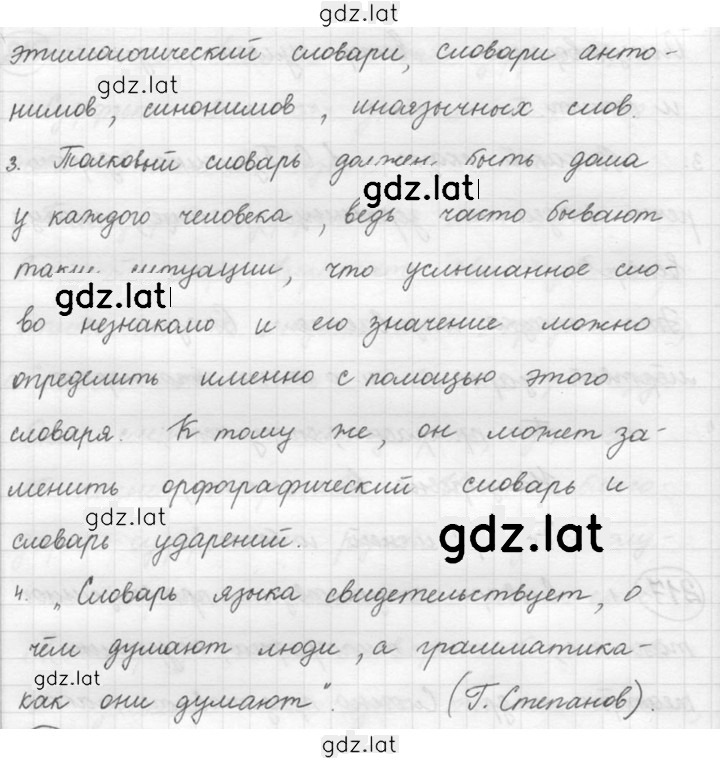 gdz.lat
этимологический словари, словари анто-
gdz.lat
нимов, синонимов, иноязычных слов.
3. Толковый словарь должен быть дома
gdz.lat
у каждого человека, ведь часто бывают
такие ситуации, что услышанное сло-
gdz.lat
во незнакомо и его значение можно
определить именно с помощью этого
словаря. К тому же, он может за-
менить орфографический словарь и
gdz.lat
словарь ударений.
gdz.lat
4. „Словарь языка свидетельствует, о
чём думают люди, а грамматика-
gdz.lat
как они думают". (Г. Степанов).
gdz.lat